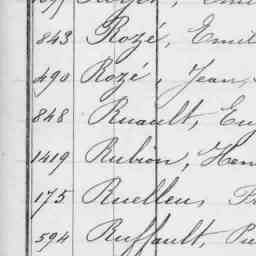 843 Rozé, Emil
490 Rozé, Jean,
848 Ruault, Eug
1419 Rubion, Hen
175 Ruelleu, Fr
594 Ruffault, Pie